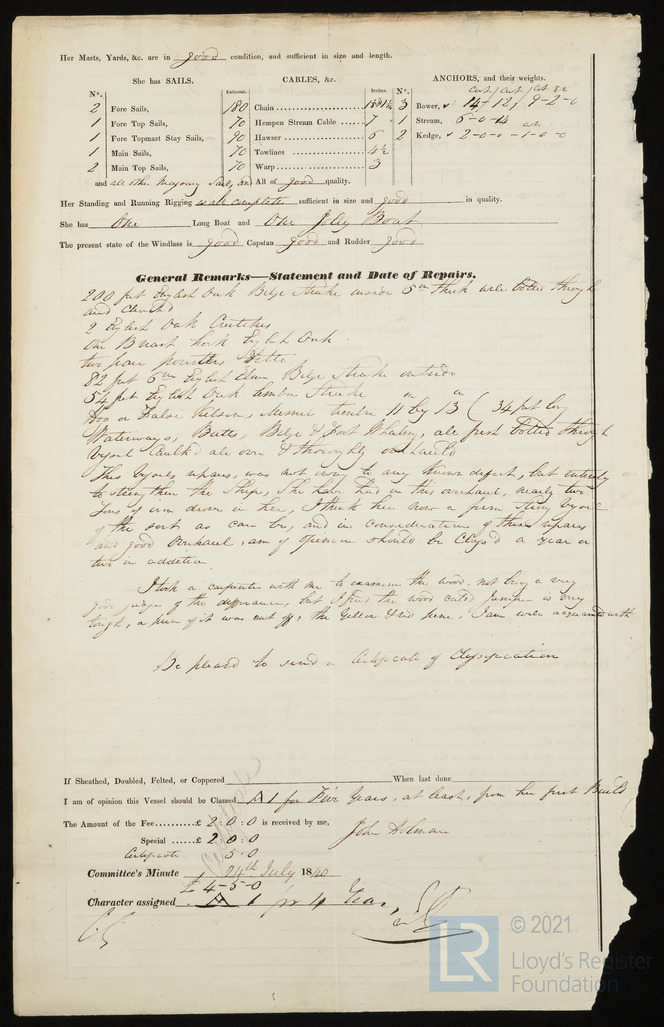 Her Masts, Yards, &c. are in good condition, and sufficient in size and length.
She has SAILS.
CABLES, &c.
ANCHORS, and their weights.
N°.
Fathoms.
Inches.
N°.
2 Fore Sails,
180 Chain
3 Bower,
1 Fore Top Sails,
70 Hempen Stream Cable 7
1 Stream,
1 Fore Topmast Stay Sails,
90 Hawser 6
2 Kedge, 2-0-0 - 1-0-0
1 Main Sails,
70 Towlines 4½
2 Main Top Sails,
70 Warp 3
and all other necessary Sails, and All of good quality.
Her Standing and Running Rigging is all complete sufficient in size and good in quality.
She has One Long Boat and One Jolly Boat
The present state of the Windlass is good Capstan good and Rudder good
General Remarks—Statement and Date of Repairs.
200 feet English Oak Bilge Strake inside 5 in thick well bolted through
and clench'd
2 English Oak Crutches
One Breast hook English Oak
two pair pointers
82 feet English Elm Bilge Strake outside
54 feet English Oak limber Strake
Dog or False Kelson, 11 by 13 (34 feet long
Waterways, Butts, Bilge & Foot Whaling, all fresh bolted through
Caulk'd all over & thoroughly overhaul'd
This repairs, was not owing to any known defect, but entirely
to strengthen the Ship, She have had in this overhaul, nearly two
Tons of iron driven in her, I think her now a firm strong
of the sort as can be, and in consideration of these repairs
and good Overhaul, am of opinion should be Class'd a year or
two in addition
I took a carpenter with me to examine the wood, not being a very
good judge of the difference, but I find the wood called Juniper is very
tough, a piece of it was cut off, the Yellow & red pine, I am well acquainted with
Be pleased to send a Certificate of Classification
If Sheathed, Doubled, Felted, or Coppered When last done
I am of opinion this Vessel should be Classed A 1 for Five Years, at least, from her first Build
The Amount of the Fee £ 2:0:0 is received by me,
John Holman
Special £ 2:0:0
Certificate 5:0
Committee's Minute 24th July 1840
£ 4-5-0
Character assigned A 1 for 4 Years
© 2021
LR
Lloyd's Register
Foundation